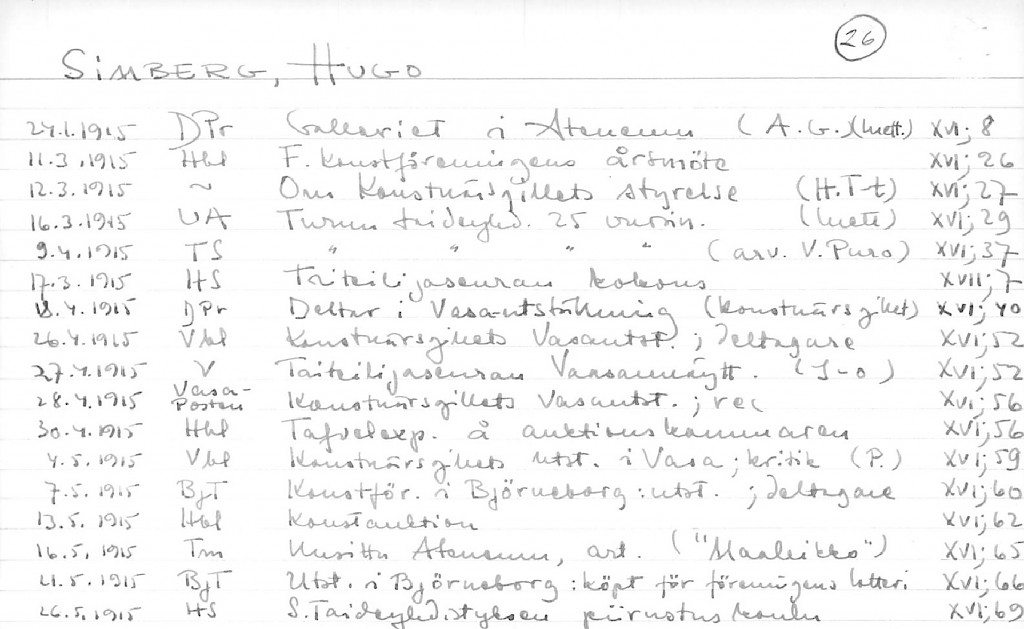 26
SIMBERG, HUGO
24.1.1915 DPr Galleriet i Ateneum (A.G.)(luett.) XVI; 8
11.3.1915 Hbl F. Konstföreningens årsmöte XVI; 26
12.3.1915 ~ Om Konstnärsgillets styrelse (H.T-t) XVI; 27
16.3.1915 UA Turun taideyhd. 25 vuotn. (luett) XVI; 29
9.4.1915 TS " " " " (arv. V. Puro) XVI; 37
17.3.1915 HS Taiteilijaseuran kokous XVII; 7
18.4.1915 DPr Deltar i Vasautställning (Konstnärsgillet) XVI; 40
26.4.1915 Vbl Konstnärsgillets Vasautst. ; deltagare XVI; 52
27.4.1915 V Taiteilijaseuran Vaasannäytt. (J-o) XVI; 52
28.4.1915 Vasa-Posten Konstnärsgillets Vasautst. ; rec XVI; 56
30.4.1915 Hbl Tafvelexp. å auktionskammaren XVI; 56
4.5.1915 Vbl Konstnärsgillets utst. i Vasa; kritik (P.) XVI; 59
7.5.1915 BjT Konstför. i Björneborg: utst. ; deltagare XVI; 60
13.5.1915 Hbl Konstauktion XVI; 62
16.5.1915 Tm Uusittu Ateneum, art. ("Maalikko") XVI; 65
21.5.1915 BjT Utst. i Björneborg: köpt för föreningens lotteri XVI; 66
26.5.1915 HS S. Taideyhdistyksen piirustuskoulu XVI; 69